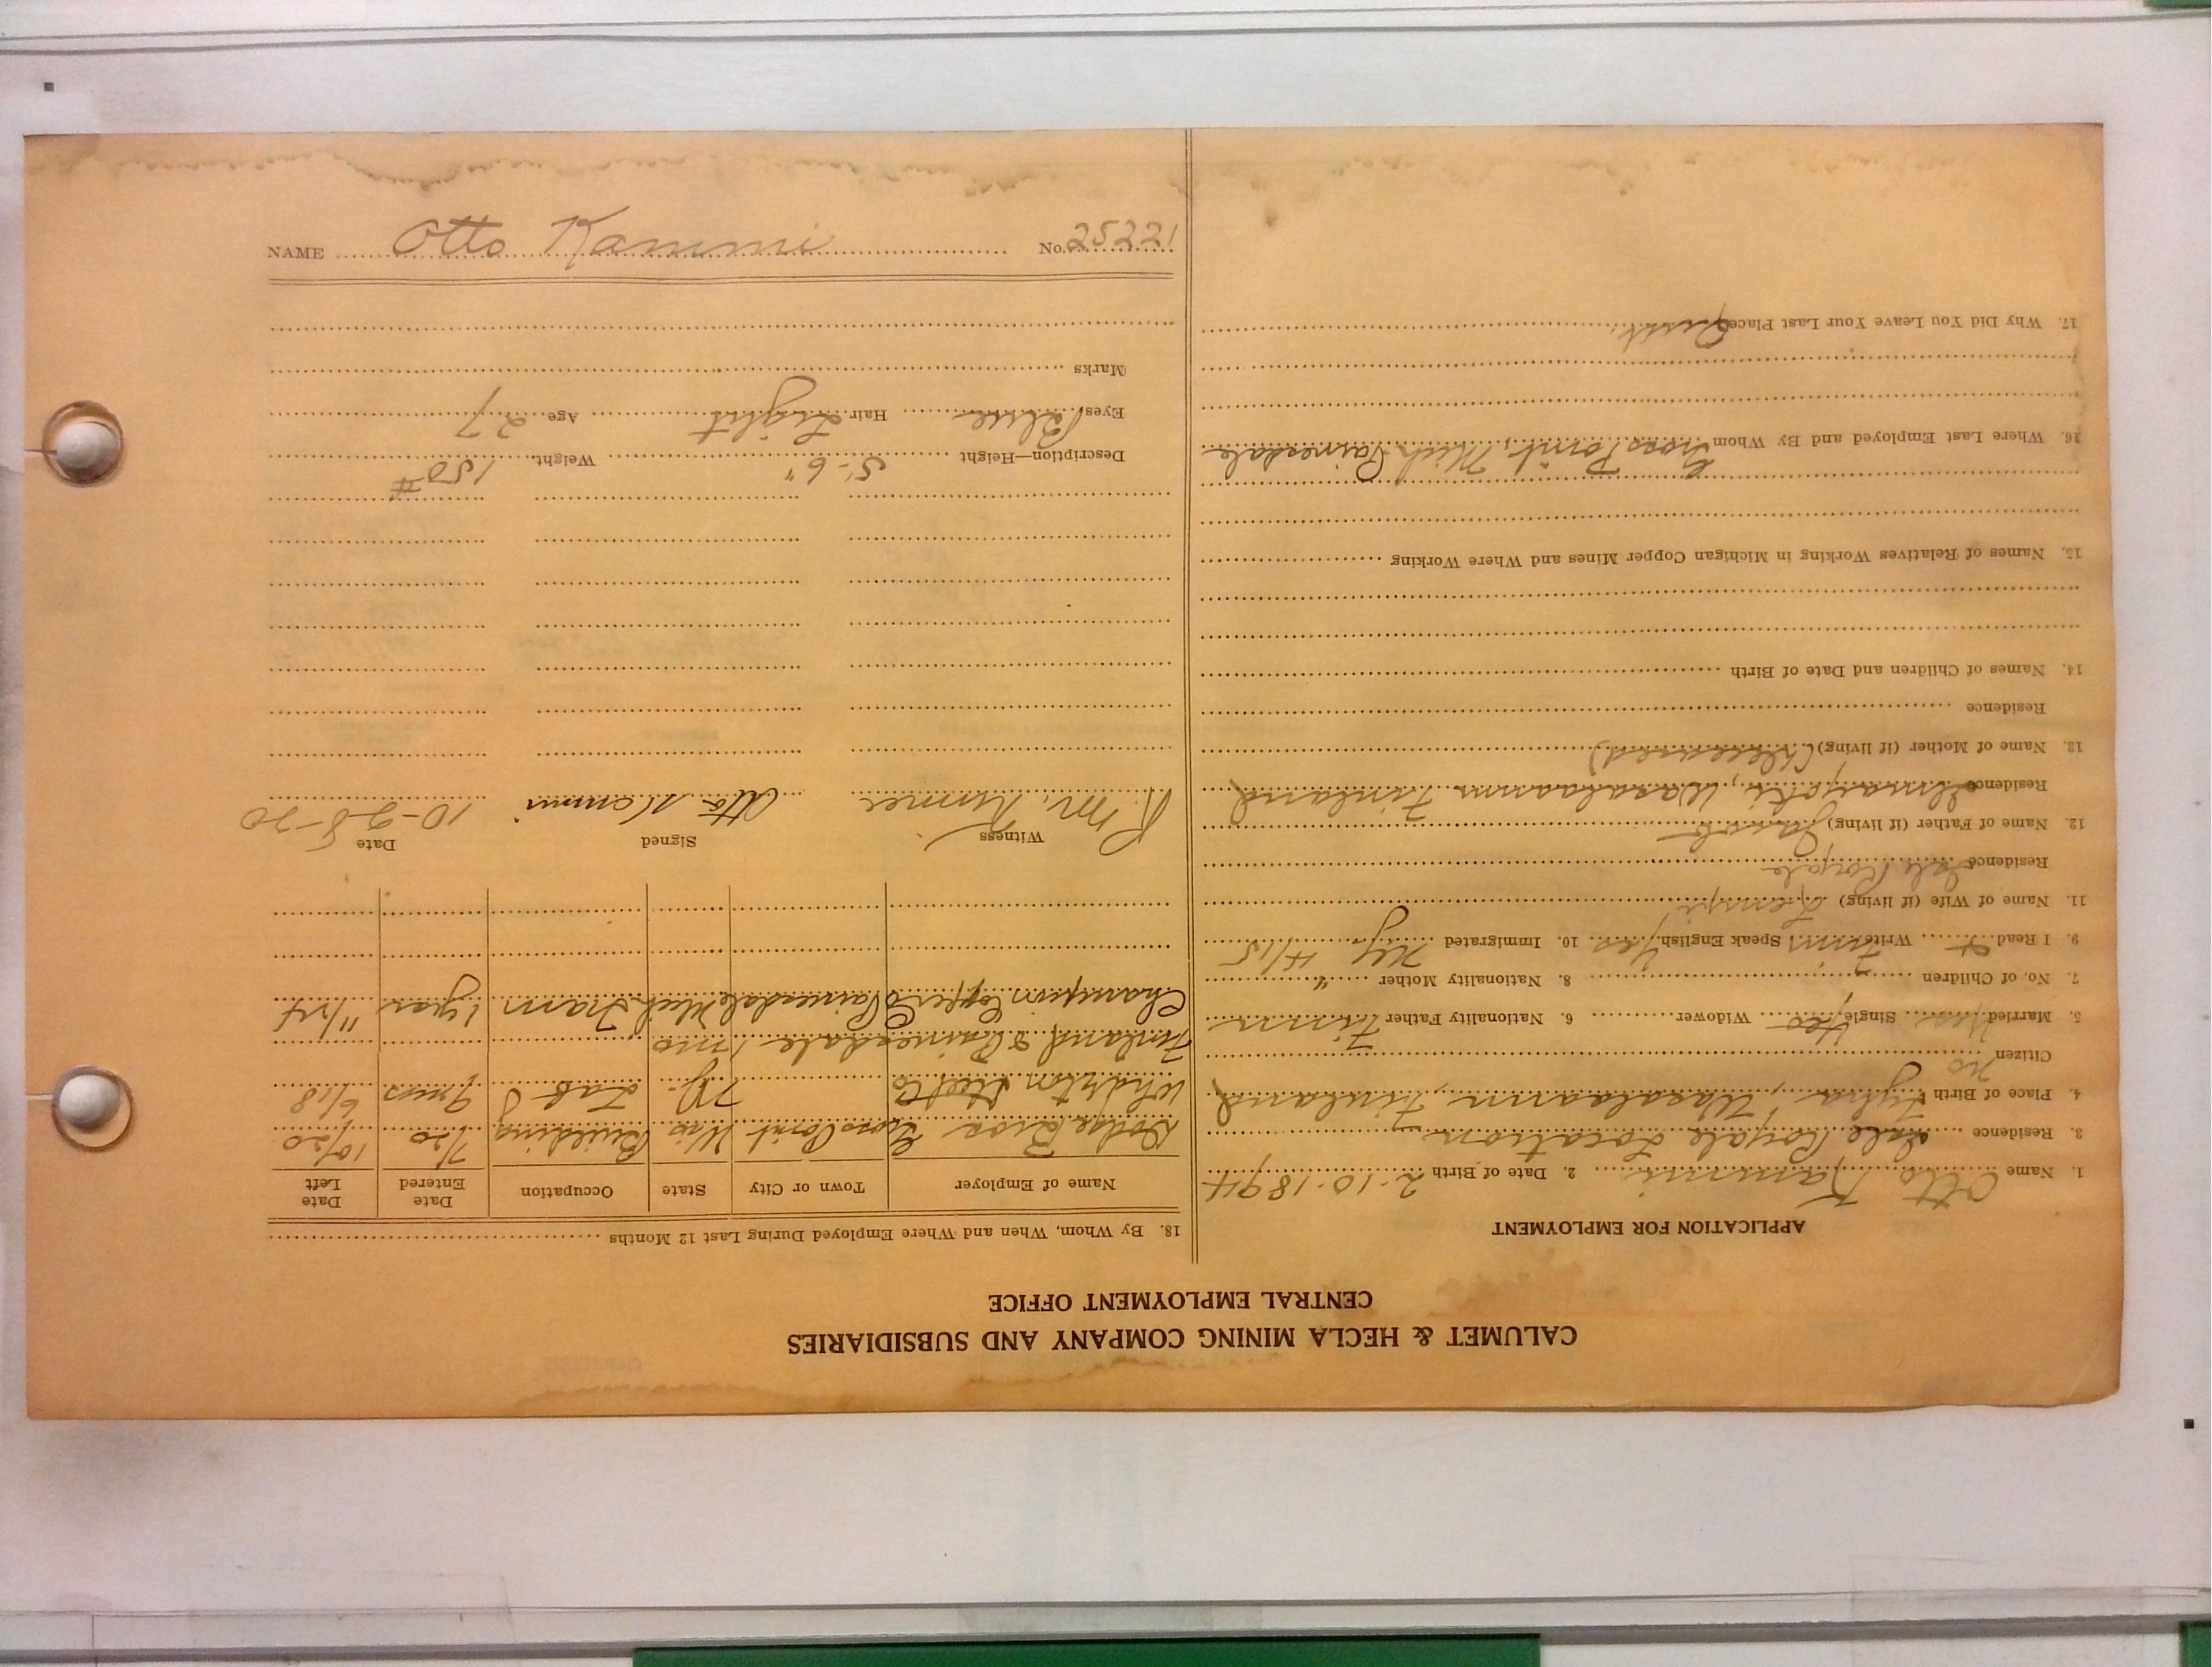 CALUMET & HECLA MINING COMPANY AND SUBSIDIARIES
CENTRAL EMPLOYMENT OFFICE
APPLICATION FOR EMPLOYMENT
1. Name Otto Kammi 2. Date of Birth 2-10-1894
3. Residence Isle Royale Location
4. Place of Birth Waasalaann, Finland
Citizen no
5. Married Yes Single Widower 6. Nationality Father Finn
7. No. of Children 8. Nationality Mother "
9. I Read Write Finn Speak English Yes 10. Immigrated NY 4/15
11. Name of Wife (if living) Lempi
Residence Isle Royale
12. Name of Father (if living) Jacob
Residence Ilmajoki, Waasalaann Finland
13. Name of Mother (if living) (deceased)
Residence
14. Names of Children and Date of Birth
15. Names of Relatives Working in Michigan Copper Mines and Where Working
16. Where Last Employed and By Whom Gross Point, Mich Painesdale
17. Why Did You Leave Your Last Place Quit
18. By Whom, When and Where Employed During Last 12 Months
Name of Employer Town or City State Occupation Date Entered Date Left
Dodge Bros Gross Point Building 7/20 10/20
Wharton Steel Co Lab 9 mos 6/18
Finland & Painesdale 1 mo
Champion Copper Co Painesdale Mich Tram 1 year 11/14
Witness Signed Date
R M. Otto Kammi 10-28-20
Description—Height 5'-6" Weight 150 #
Eyes Blue Hair Light Age 27
Marks
NAME Otto Kammi No. 25221